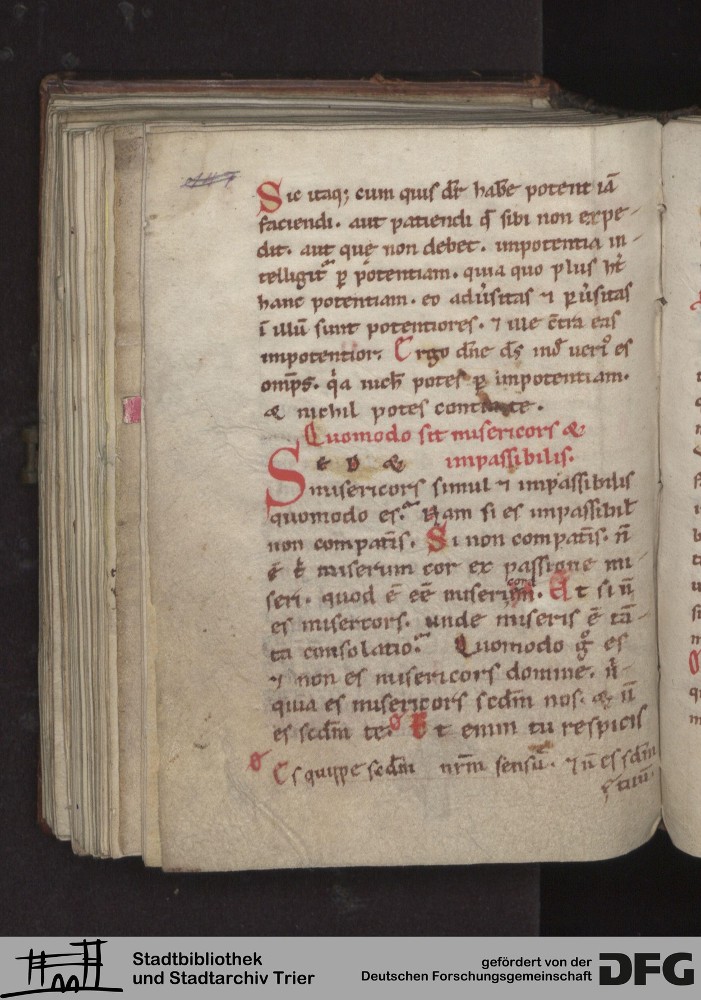 Sic itaq; cum quis dr̄ habe potentiā
faciendi. aut patiendi qd̄ sibi non expe-
dit. aut que non debet. impotentia in-
telligit᷑ p̱ potentiam. quia quo plus ht̄
hanc potentiam. eo aduͥsitas ⁊ puͥsitas
ī illū sunt potentiores. ⁊ ille cͦtra eas
impotentior. Ergo dn̄e ds̄ ind̾ ueri᷒ es
omp̄s. qͥa nich̄ potes p̱ impotentiam.
& nichil potes contra te.
Quomodo sit misericors &
impassibilis.
Sed &
misericors simul ⁊ impassibilis
quomodo es. Nam si es impassibil̄
non compatis̄. Si non compatis̄. n̄
ē t̄ miserum cor ex passione mi-
seri. quod ē eē misericor. At si n̄
es misericors. unde miseris ē tā-
ta consolatio. Quomodo gͦ es
⁊ non es misericors domine. n̄
quia es misericors scdm̄ nos. & n̄
es scdm̄ te. Et enim tu respicis
Es quippe scdm̄ nr̄m sensū. ⁊ n̄ es scdm̄
tuū.
Stadtbibliothek
und Stadtarchiv Trier
gefördert von der
Deutschen Forschungsgemeinschaft
DFG